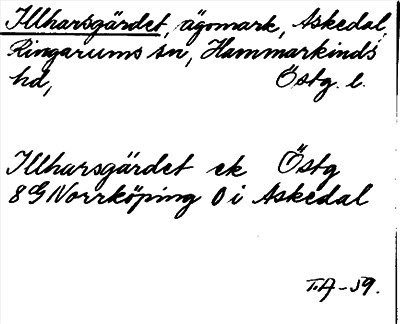 Illharsgärdet, ägomark, Askedal,
Ringarums sn, Hammarkinds
hd, Östg. l.
Illharsgärdet ek Östg
8G Norrköping O i Askedal
T.A-59.